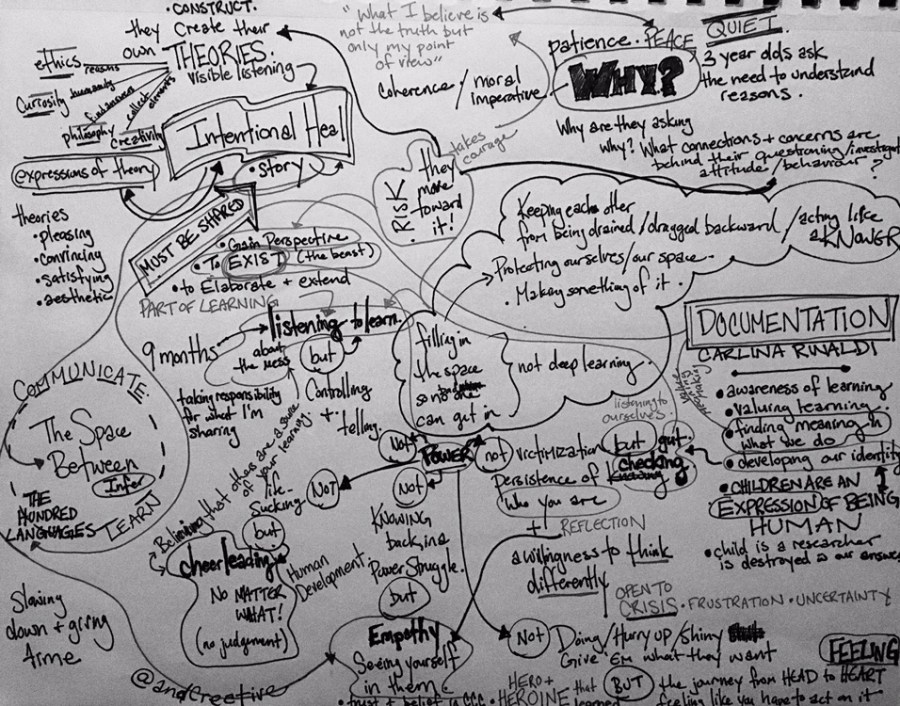 • CONSTRUCT.
they create their
own THEORIES.
visible listening
ethics
reasons
Curiosity
humanity
find answers
collect
philosophy
creativity
expressions of theory
Intentional Heal
• story
theories
• pleasing
• convincing
• satisfying
• aesthetic
MUST BE SHARED
• Gain Perspective
• To EXIST (the beast)
• to Elaborate + extend
PART OF LEARNING
listening to learn
9 months
about
the mess
but
Controlling
+
telling.
taking responsibility
for what I'm
sharing
COMMUNICATE
The Space
Between
Infer
LEARN
THE
HUNDRED
LANGUAGES
Slowing
down + giving
time
@andcreetive
Believing that others are a source
of your learning.
life-
Sucking
NOT
but
cheerleading
NO MATTER
WHAT!
(no judgement)
Human
Development.
"What I believe is
not the truth but
only my point
of view"
Coherence / moral
imperative
takes
courage
RISK.
they
move
toward
it!
patience. PEACE
QUIET
WHY?
3 year olds ask
the need to understand
reasons.
Why are they asking
why? What connections + concerns are
behind their questioning/investigat
attitude/behaviour?
Keeping each other
from being drained/dragged backward / acting like
a KNOWER
Protecting ourselves/our space.
. Making something of it.
filling in
the space
so no one
can get in
not deep learning.
listening to
ourselves.
DOCUMENTATION
CARLINA RINALDI
• awareness of learning
• valuing learning
• finding meaning in
what we do
• developing our identity
• CHILDREN ARE AN
EXPRESSION OF BEING
HUMAN
• child is a researcher
is destroyed is our answer
Not
POWER
not
victimization
but
gut
checking
Knowing
Persistence of
who you are
+ REFLECTION
a willingness to think
differently
OPEN TO
CRISIS • FRUSTRATION • UNCERTAINTY
Not
KNOWING
backing
Power Struggle.
but
Empathy
Seeing yourself
in them
• trust + belief
Not
Doing/Hurry up/Shiny
Give 'em what they want
FEELING
HERO +
HEROINE that
learned
BUT
the journey from HEAD to HEART
feeling like you have to act on it